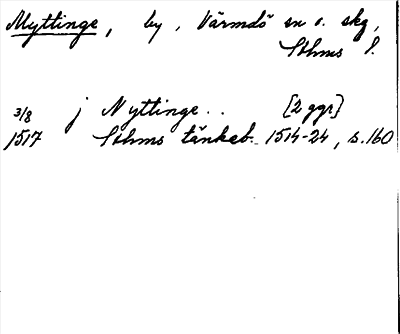 Myttinge, by, Värmdö sn o. skg,
Sthms l.
3/8 j Nyttinge.. [2 ggr]
1517 Sthms tänkeb. 1514-24, s.160